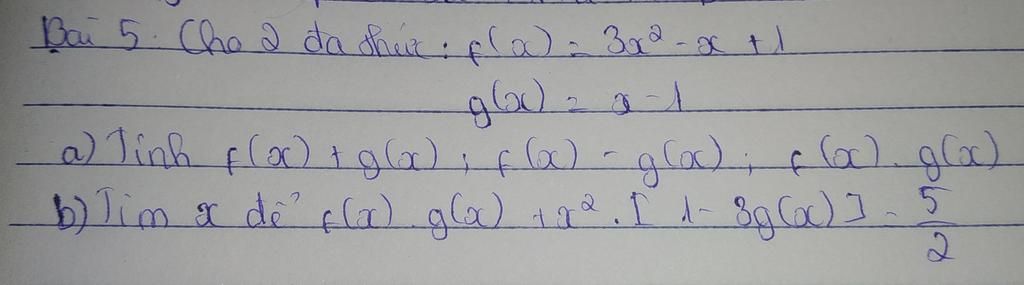 Bài 5. Cho 2 đa thức : f(x) = 3x² - x + 1
g(x) = x - 1
a) Tính f(x) + g(x) ; f(x) - g(x) ; f(x) . g(x)
b) Tìm x để f(x) . g(x) + x² . [ 1 - 3g(x) ] = 5/2